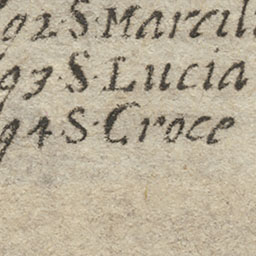 92·S·Marcil
93·S·Lucia
94·S·Croce